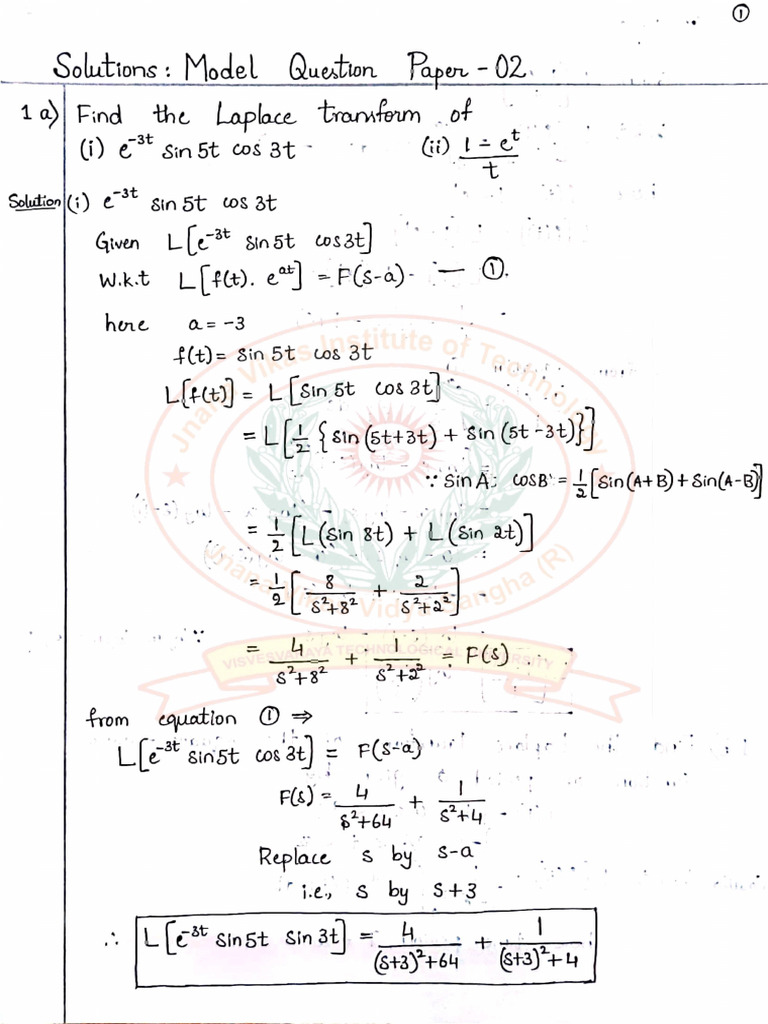 ①
Solutions: Model Question Paper - 02.
1 a) Find the Laplace transform of
(i) e^-3t sin 5t cos 3t (ii) (1 - e^t)/t
Solution (i) e^-3t sin 5t cos 3t
Given L[e^-3t sin 5t cos 3t]
W.k.t L[f(t). e^at] = F(s-a) — ①.
here a = -3
f(t) = sin 5t cos 3t
L[f(t)] = L[sin 5t cos 3t]
= L[1/2 {sin (5t+3t) + sin (5t-3t)}]
∵ Sin A. cos B = 1/2 [sin(A+B) + sin(A-B)]
= 1/2 [L(sin 8t) + L(sin 2t)]
= 1/2 [8/(s²+8²) + 2/(s²+2²)]
= 4/(s²+8²) + 1/(s²+2²) = F(s)
from equation ① ⇒
L[e^-3t sin 5t cos 3t] = F(s-a)
F(s) = 4/(s²+64) + 1/(s²+4)
Replace s by s-a
i.e., s by s+3
∴ L[e^-3t sin 5t sin 3t] = 4/((s+3)²+64) + 1/((s+3)²+4)
Jnana Vikas Institute of Technology
Jnana Vikas Vidya Sangha (R)
VISVESVARAYA TECHNOLOGICAL UNIVERSITY